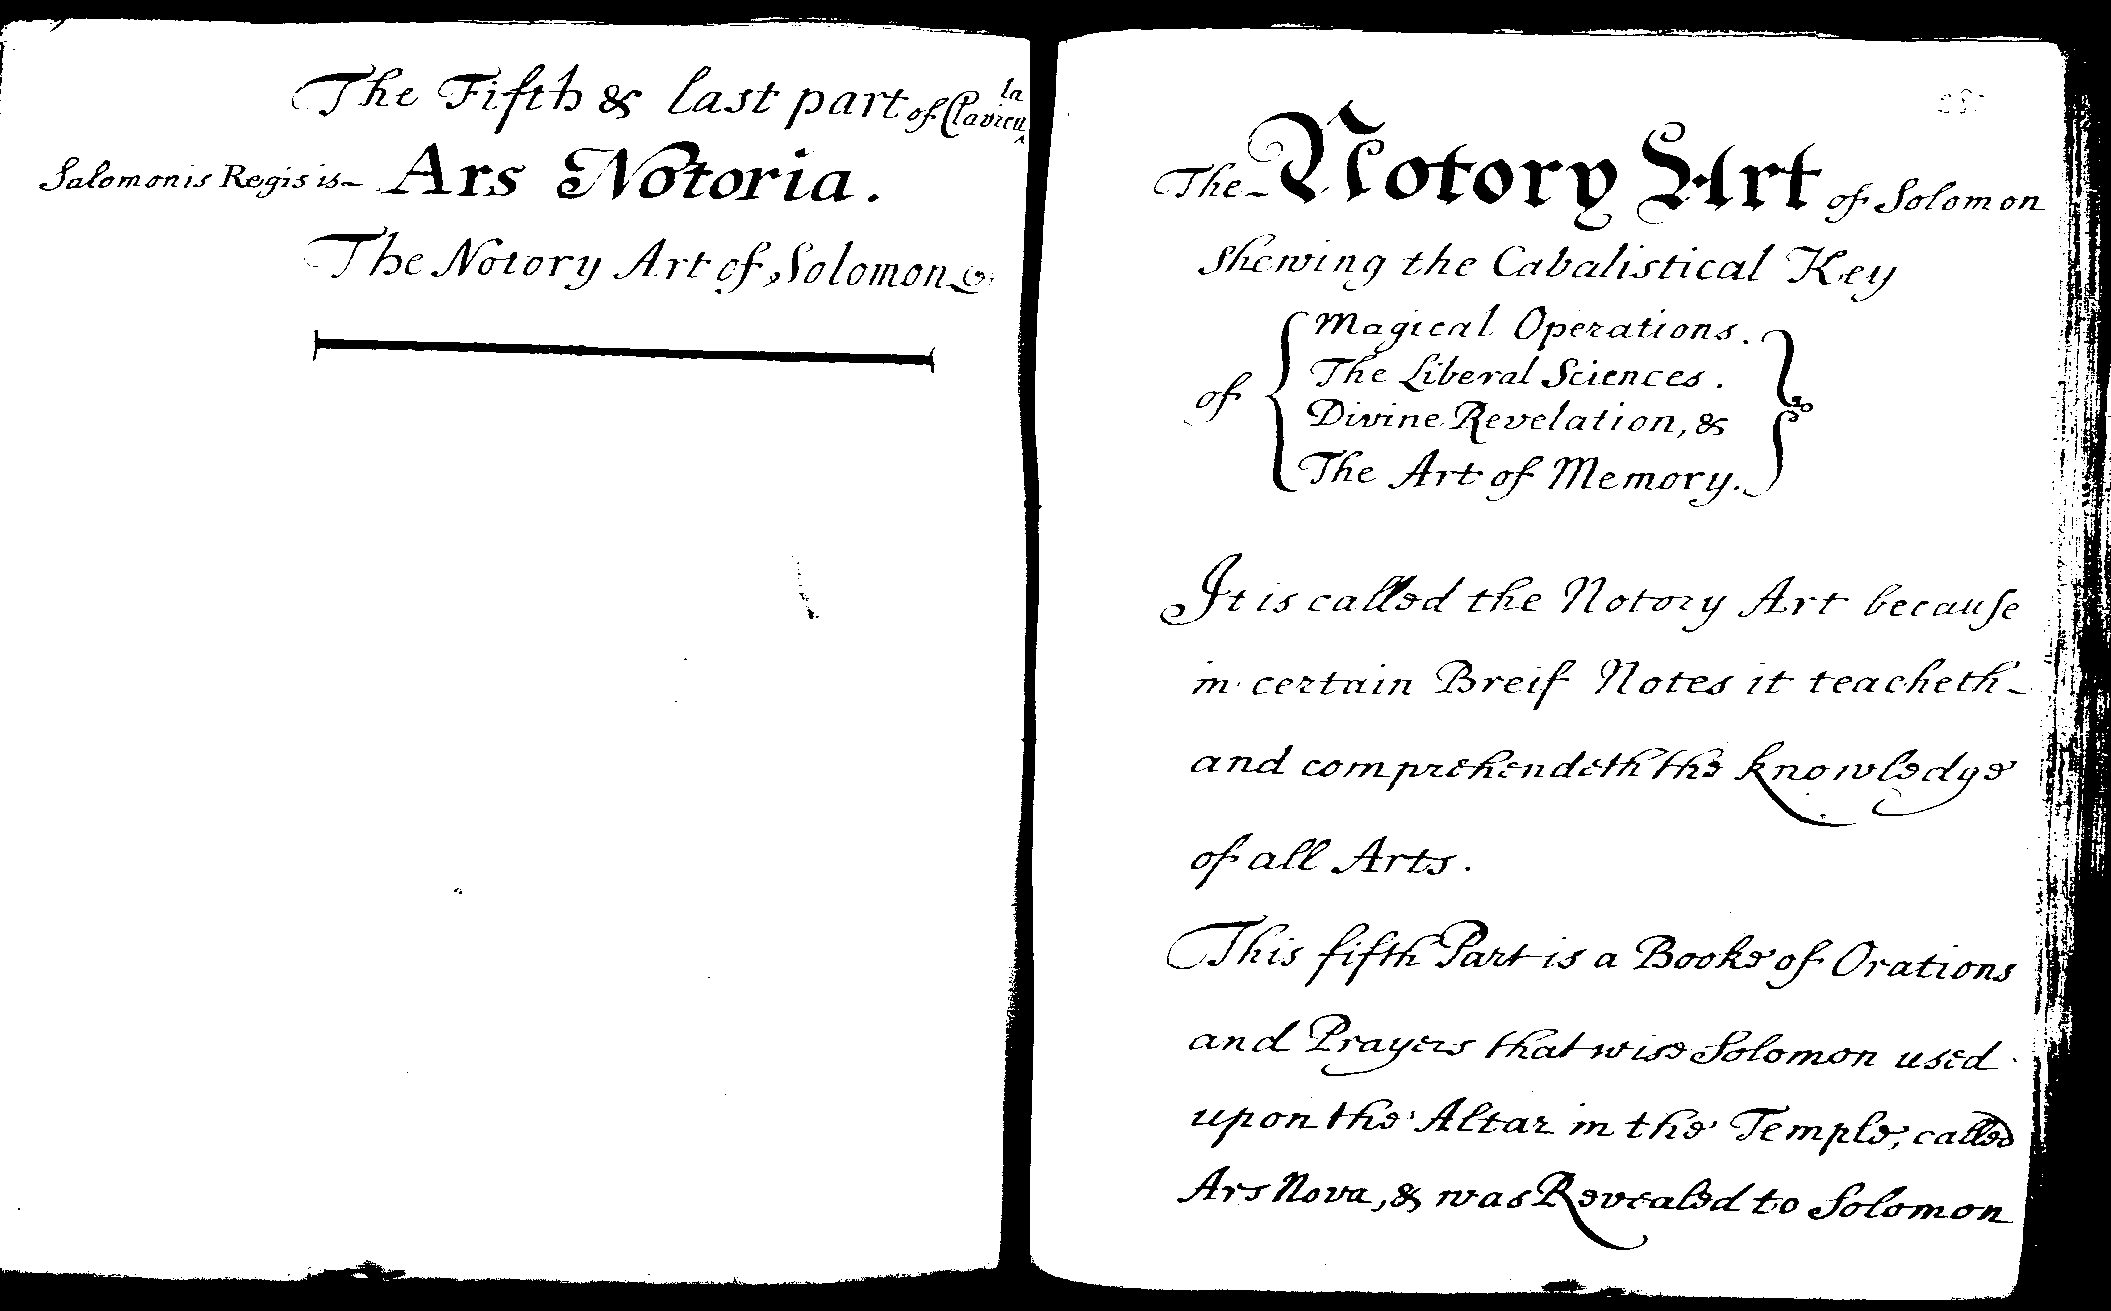 The Fifth & last part of Clavicula
Salomonis Regis is - Ars Notoria.
The Notory Art of Solomon
The - Notory Art of Solomon
Shewing the Cabalistical Key
of
Magical Operations.
The Liberal Sciences.
Divine Revelation, &
The Art of Memory.
It is called the Notory Art because
in certain Breif Notes it teacheth -
and comprehendeth the knowledge
of all Arts.
This fifth Part is a Booke of Orations
and Prayers that wise Solomon used
upon the Altar in the Temple, called
Ars Nova, & was Revealed to Solomon